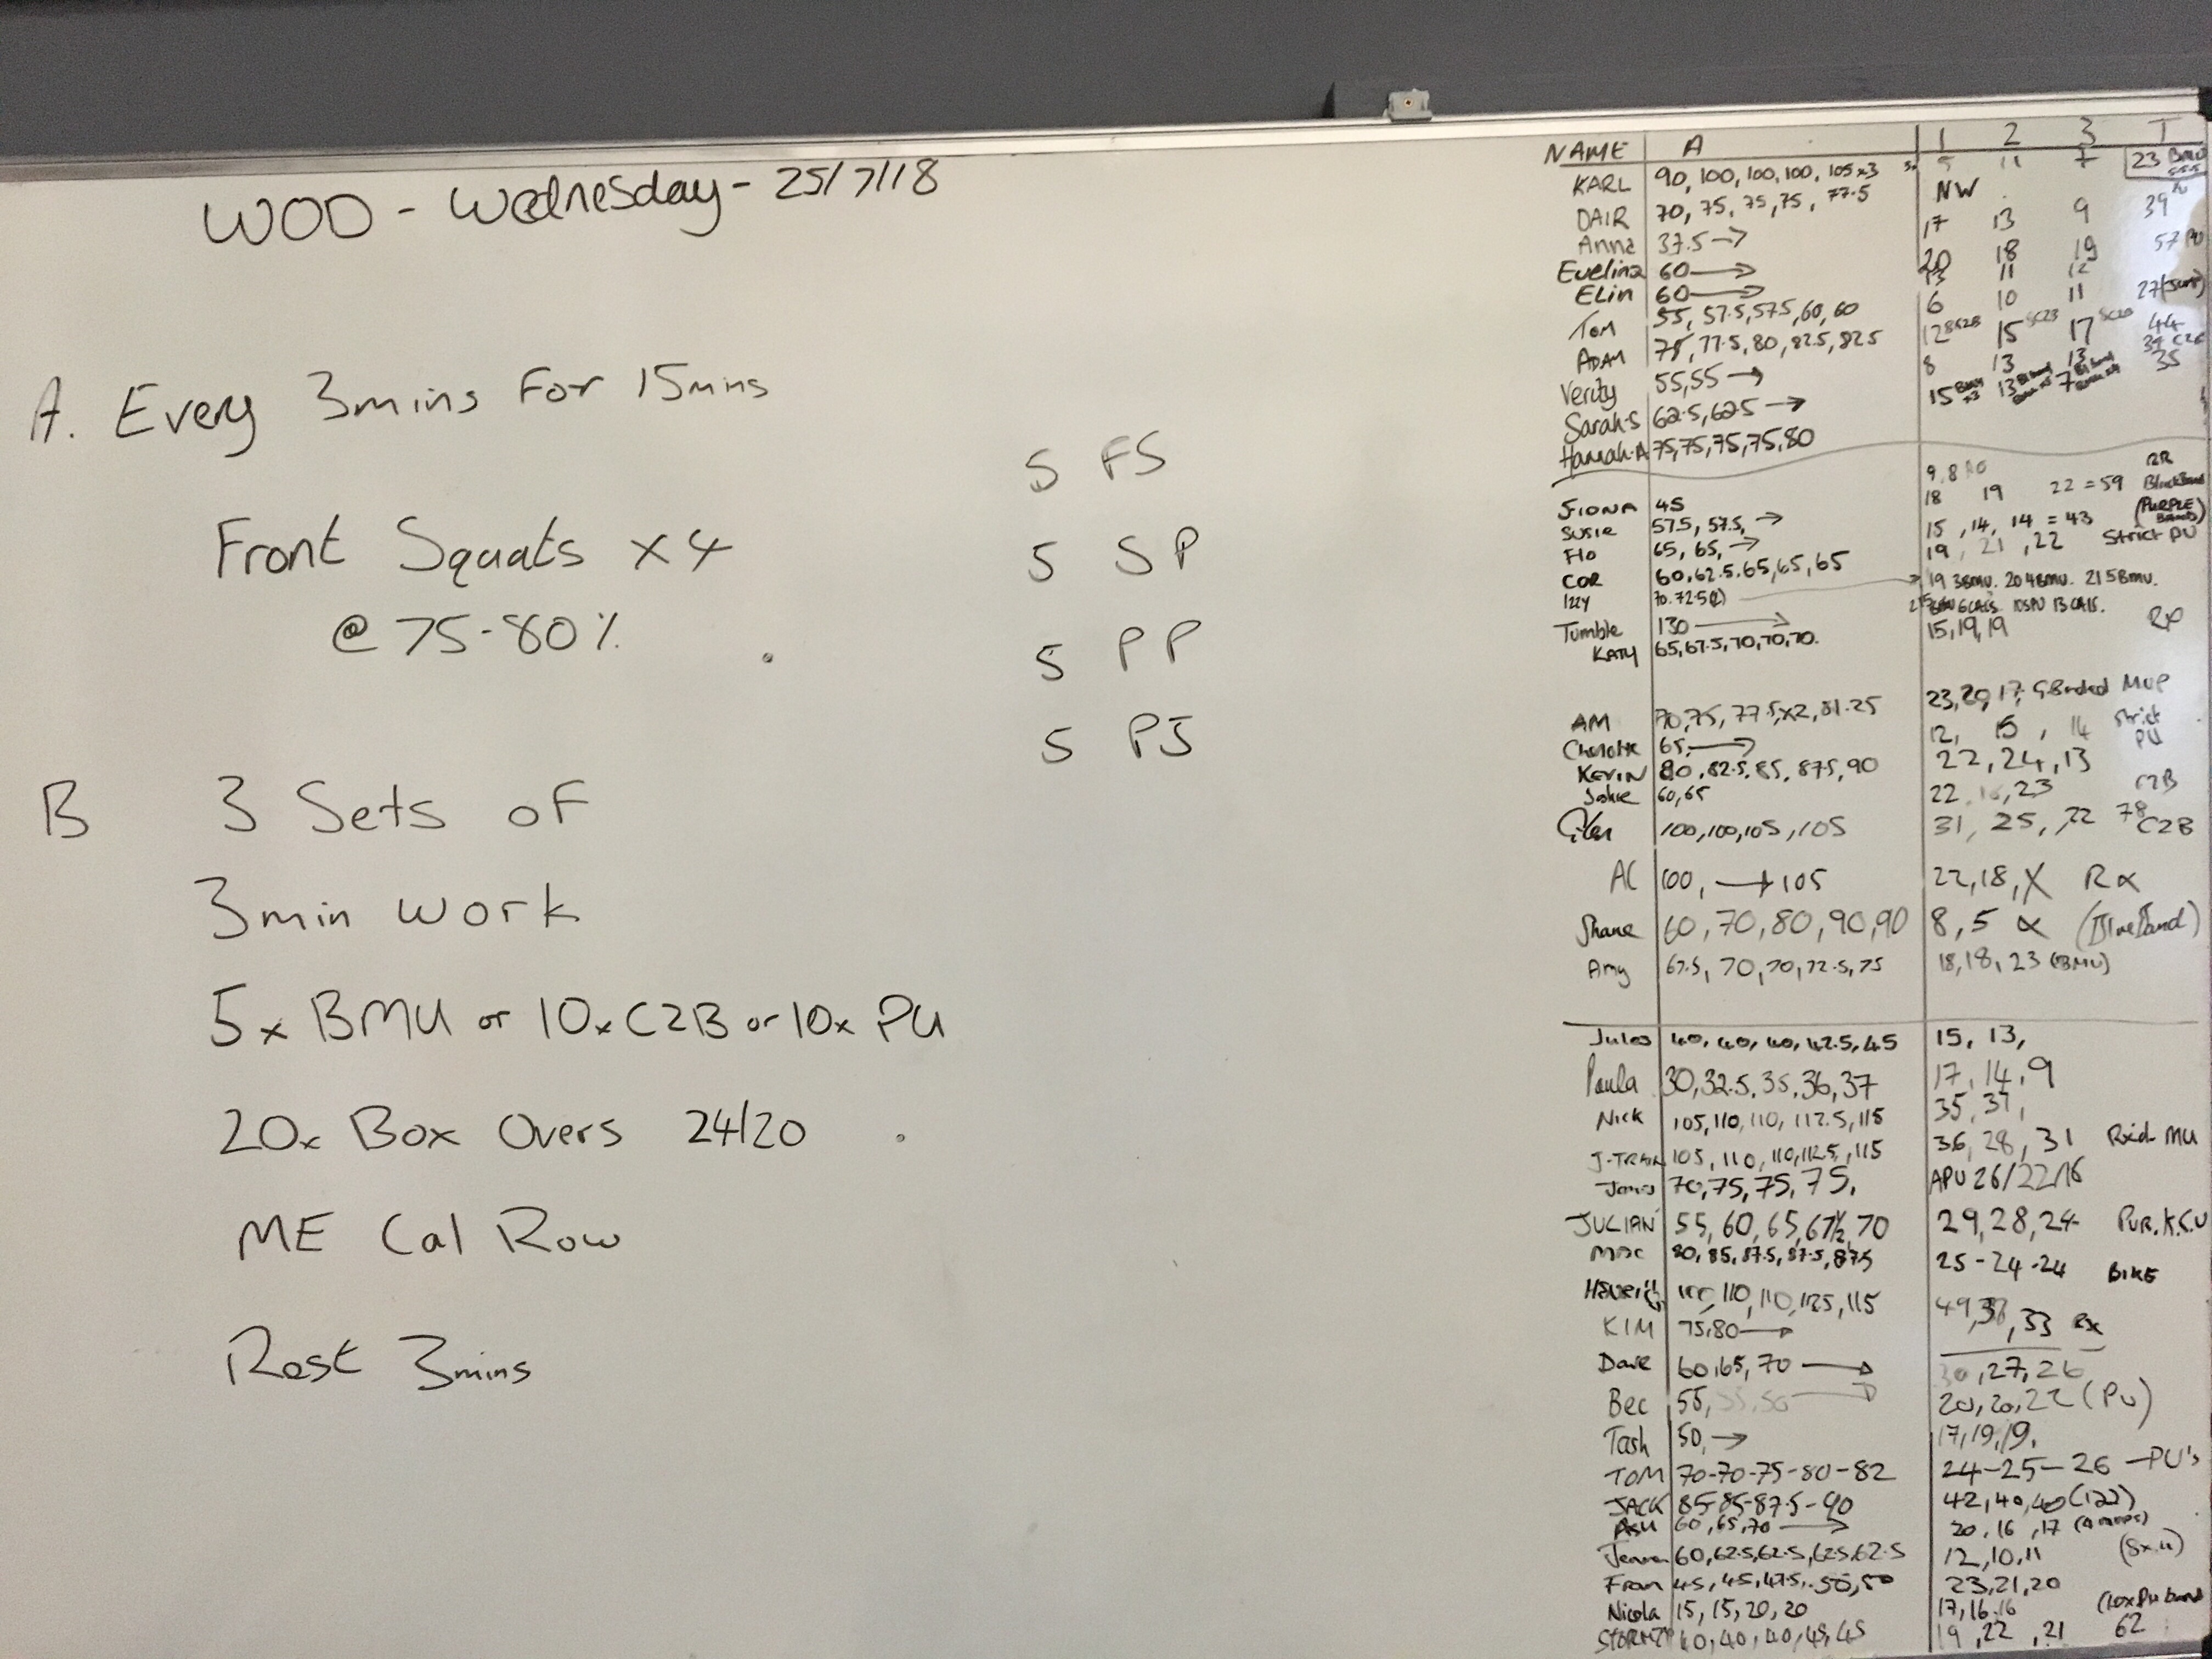 WOD - Wednesday - 25/7/18
A. Every 3mins For 15mins
Front Squats x 4
@ 75-80%
5 FS
5 SP
5 PP
5 PJ
B 3 Sets of
3min work
5x BMU or 10x C2B or 10x PU
20x Box Overs 24/20
ME Cal Row
Rest 3mins
NAME A 1 2 3 T
KARL 90, 100, 100, 100, 105x3 5 11 7 23 BMU
DAIR 70, 75, 75, 75, 77.5 NW
Anna 37.5 → 17 13 9 39
Evelina 60 → 20 18 19 57 PU
Elin 60 → 13 11 12
Tom 55, 57.5, 57.5, 60, 60 6 10 11 27
ADAM 75, 77.5, 80, 82.5, 82.5 12 15 17 44
Verity 55, 55 → 8 13 13
Sarah.S 62.5, 62.5 → 15 13 7 35
Hannah.A 75, 75, 75, 75, 80
FIONA 45 9, 8
Susie 57.5, 57.5, → 18 19 22 = 59
Flo 65, 65, → 15, 14, 14 = 43 (PURPLE BAND)
COR 60, 62.5, 65, 65, 65 19, 21, 22 Strict PU
Izzy 70. 72.5(2) → 19 3BMU. 20 4BMU. 21 5BMU.
Tumble 130 → 6CALS 10SPU 13 CALS.
KATY 65, 67.5, 70, 70, 70. 15, 19, 19 Rx
AM 70, 75, 77.5, x2, 81.25 23, 20, 17, Banded MUP
Charlotte 65, → 12, 15, 14 Strict PU
KEVIN 80, 82.5, 85, 87.5, 90 22, 24, 13
60, 65 22, 16, 23 C2B
Glen 100, 100, 105, 105 31, 25, 22 78 C2B
AC 100, → 105 22, 18, X Rx
Shane 60, 70, 80, 90, 90 8, 5 (Blue Band)
Amy 67.5, 70, 70, 72.5, 75 18, 18, 23 (BMU)
Jules 40, 40, 40, 42.5, 45 15, 13,
Paula 30, 32.5, 35, 36, 37 17, 14, 9
Nick 105, 110, 110, 112.5, 115 35, 31,
J-TRAIN 105, 110, 110, 112.5, 115 36, 28, 31 Rx'd MU
James 70, 75, 75, 75, APU 26/22/16
JULIAN 55, 60, 65, 67½, 70 29, 28, 24 PUR. K.S.U
Mac 80, 85, 87.5, 87.5, 87.5 25-24-24 BIKE
100, 110, 110, 112.5, 115 49, 38, 33 Rx
KIM 75, 80 →
Dave 60, 65, 70 → 30, 27, 26
Bec 55, 55, 50 → 20, 20, 22 (PU)
Tash 50, → 17, 19, 19.
TOM 70-70-75-80-82 24-25-26 -PU's
JACK 85-85-87.5-90 42, 40, 40 (122)
ASH 60, 65, 70 → 20, 16, 17
Jenna 60, 62.5, 62.5, 62.5, 62.5 12, 10, 11
Fran 45, 45, 47.5, 50, 50 23, 21, 20
Nicola 15, 15, 20, 20 17, 16, 16 (10xPU band
STORMZY 40, 40, 40, 45, 45 19, 22, 21 62